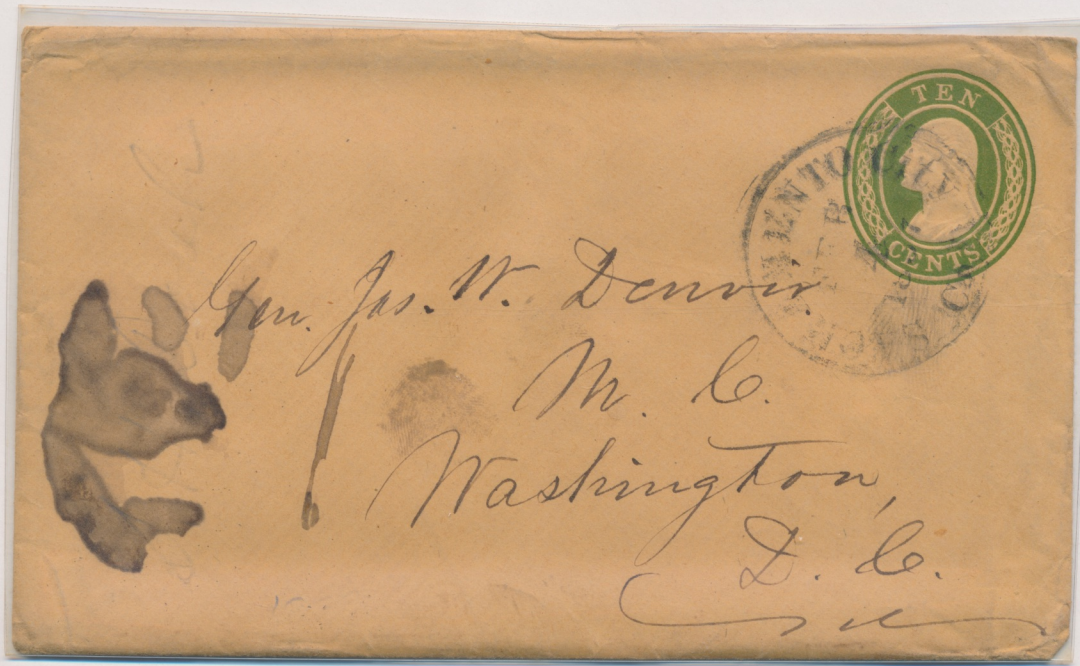 TEN
CENTS
CITY
Gen. Jas. W. Denver
M. C.
Washington,
D. C.